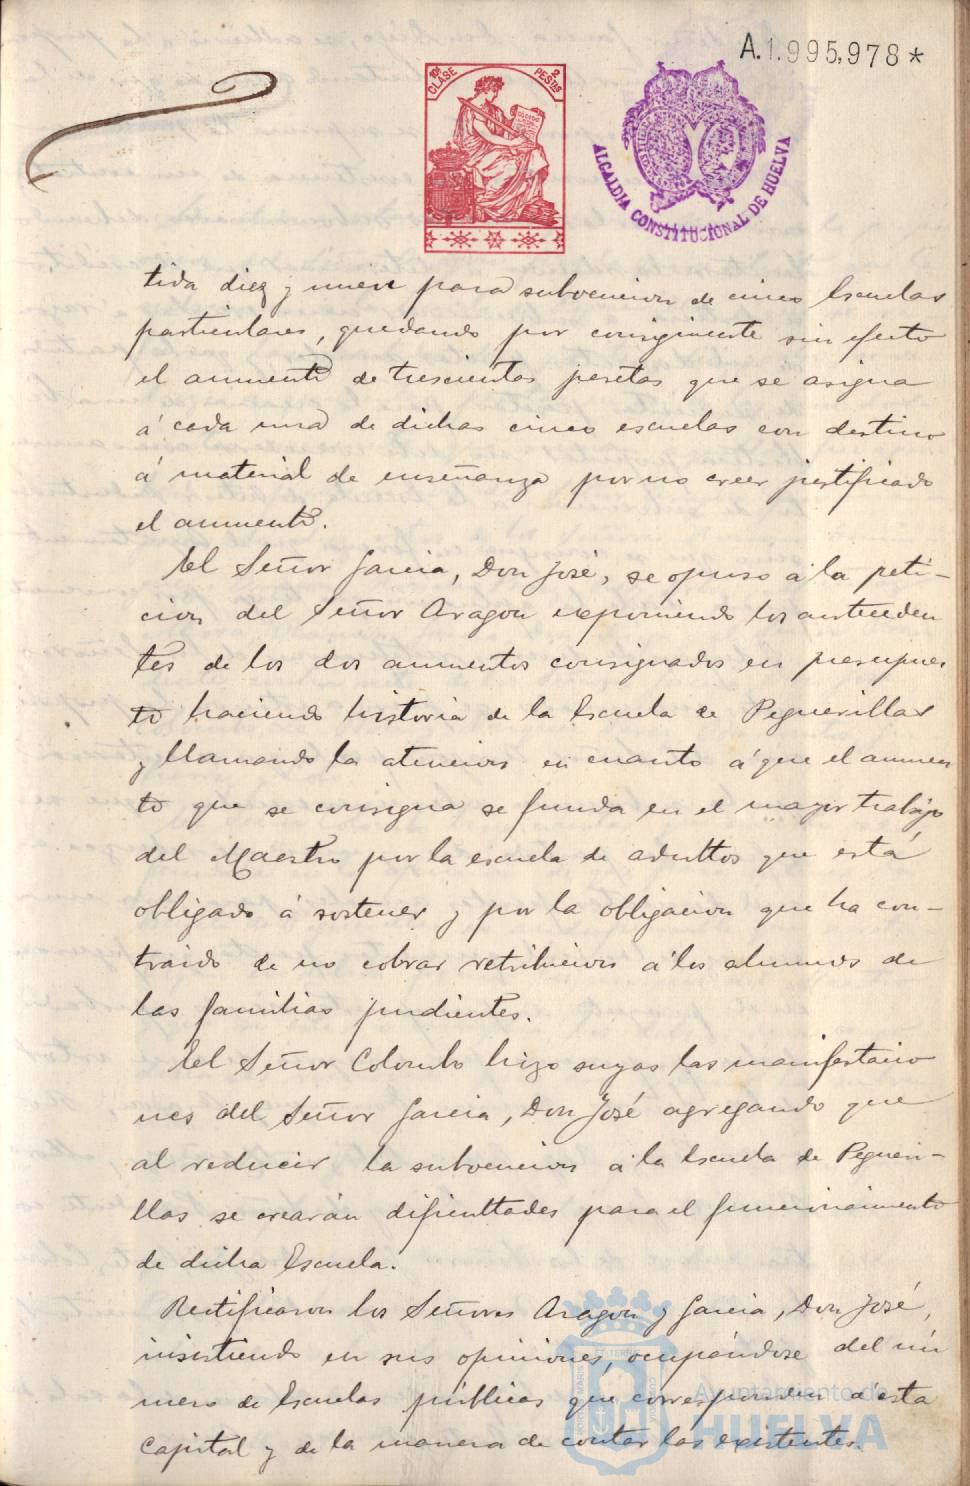 A.1.995,978*
10ª CLASE
2 PESTAS
ALCALDIA CONSTITUCIONAL DE HUELVA
tida diez y nueve para subvencion de cinco Escuelas
particulares, quedando por consiguiente sin efecto
el aumento de trescientas pesetas que se asigna
á cada una de dichas cinco escuelas con destino
á material de enseñanza por no creer justificado
el aumento.
El Señor Garcia, Don José, se opuso á la peti-
cion del Señor Aragon exponiendo los anteceden
tes de los dos aumentos consignados en presupues
to haciendo historia de la Escuela de Peguerillas
y llamando la atencion en cuanto á que el aumen
to que se consigna se funda en el mayor trabajo
del Maestro por la escuela de adultos que está
obligado á sostener y por la obligacion que ha con-
traido de no cobrar retribucion á los alumnos de
las familias pudientes.
El Señor Colombo hizo suyas las manifestacio
nes del Señor Garcia, Don José agregando que
al reducir la subvencion á la Escuela de Pegueri-
llas se crearán dificultades para el funcionamiento
de dicha Escuela.
Rectificaron los Señores Aragon y Garcia, Don José,
insistiendo en sus opiniones, ocupándose del nú
mero de Escuelas públicas que corresponden á esta
Capital y de la manera de contar las existentes.
Ayuntamiento de
HUELVA